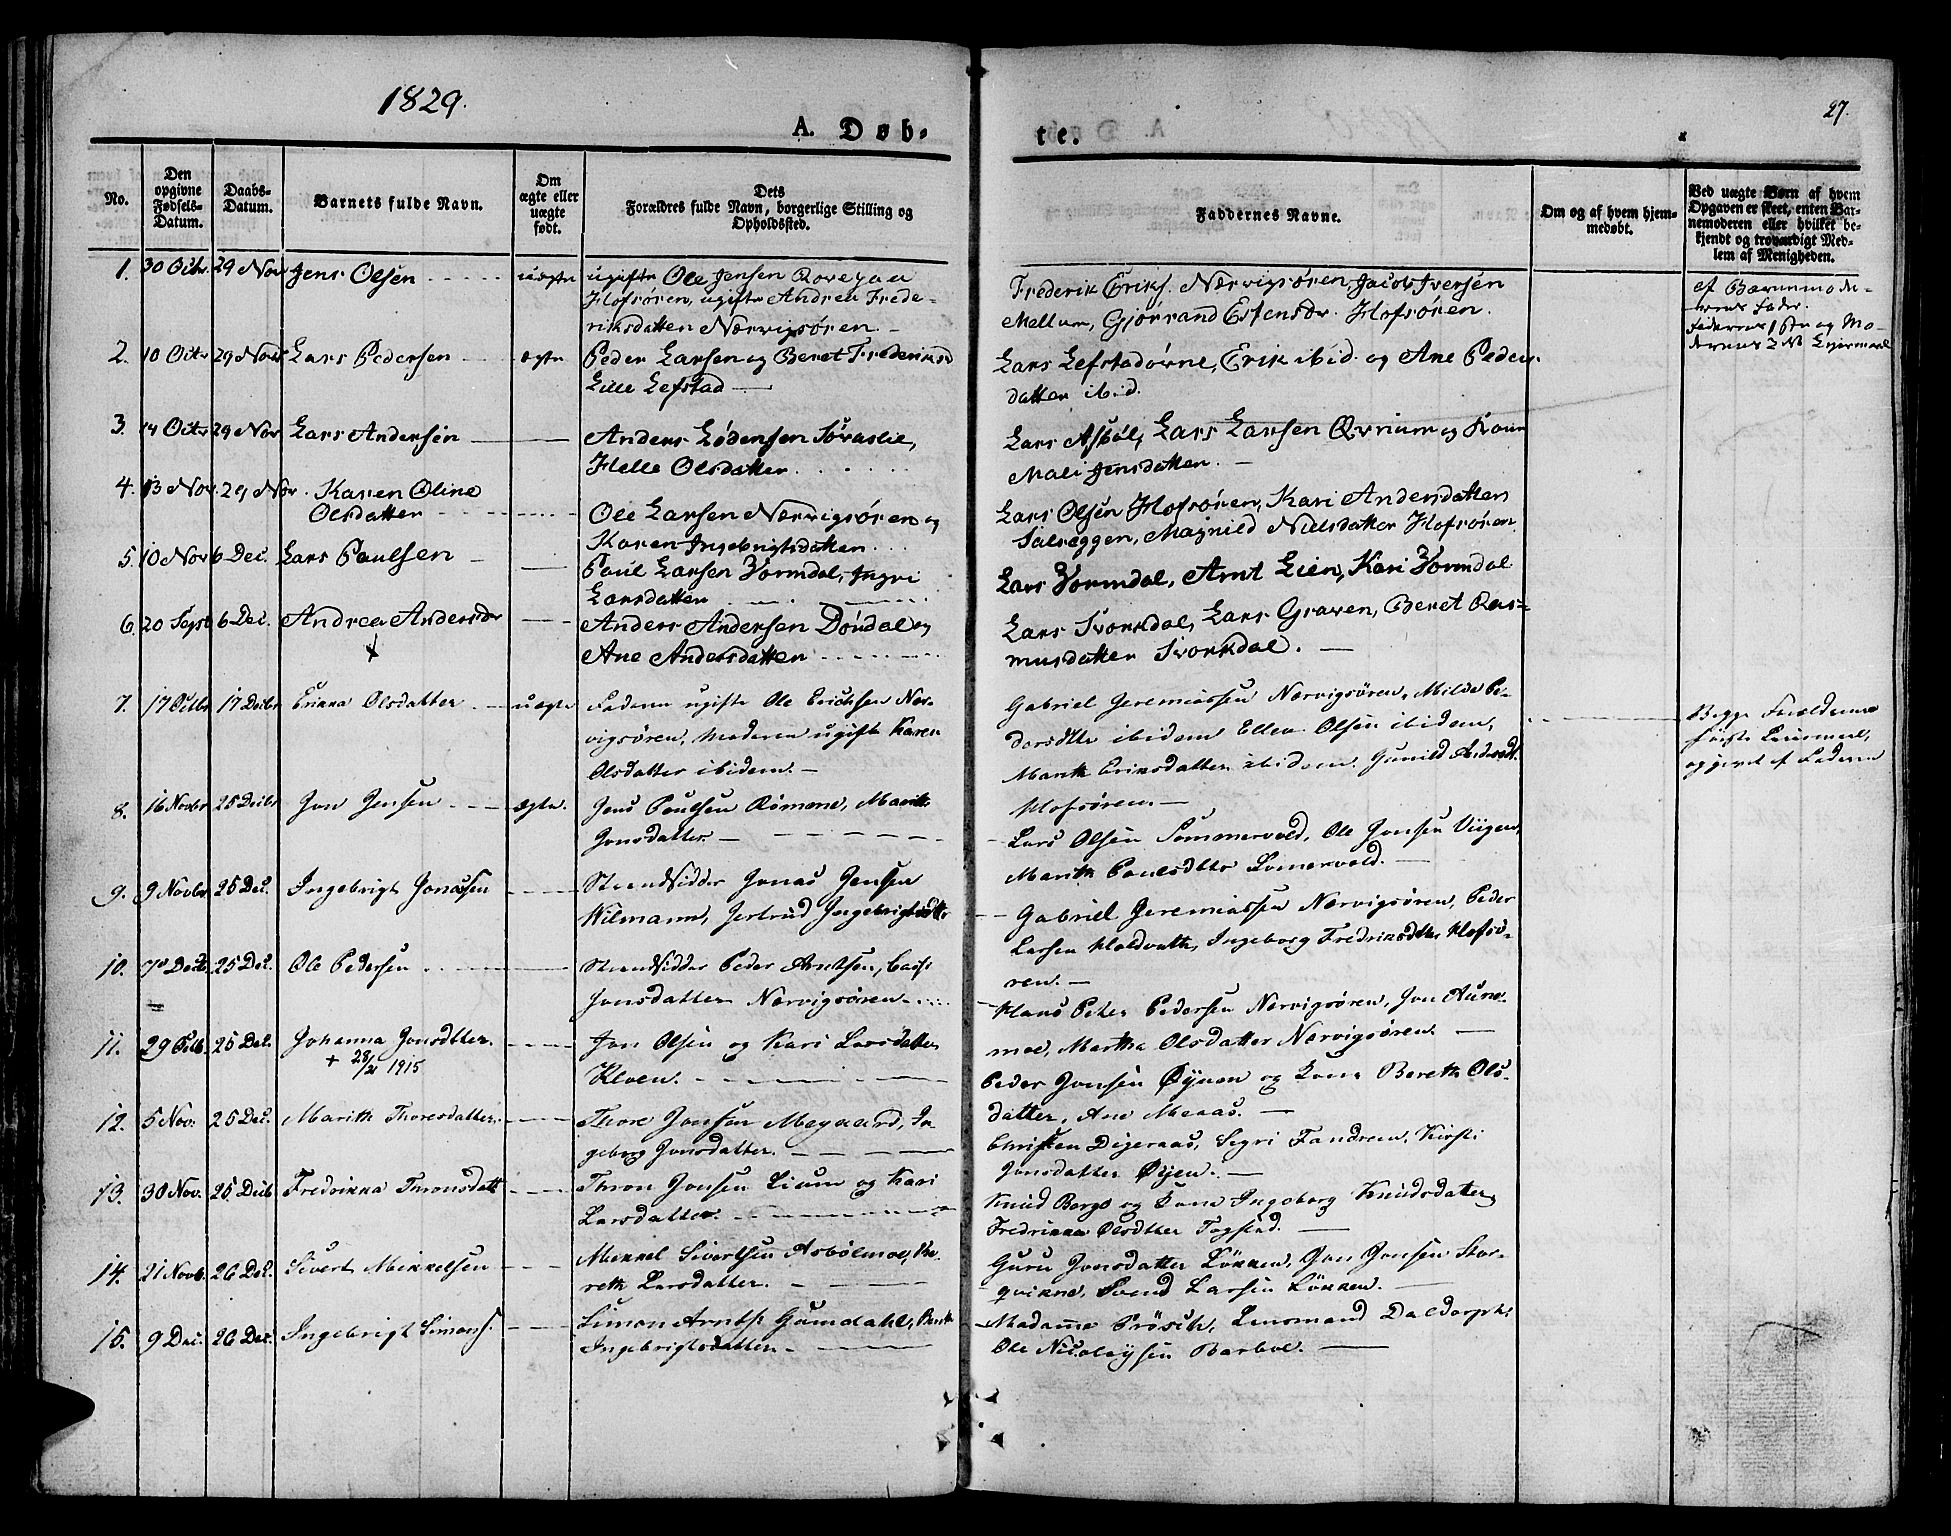 1829.
27.
A. Døb-
te.
No.
Den opgivne Fødsels-Datum.
Daabs-Datum.
Barnets fulde Navn.
Om ægte eller uægte født.
Dets Forældres fulde Navn, borgerlige Stilling og Opholdssted.
Faddernes Navne.
Om og af hvem hjem-
medøbt.
Ved uægte Børn af hvem
Opgaven er skeet, enten Bar-
nemoderen eller hvilket be-
kjendt og troværdigt Med-
lem af Menigheden.
1. 30 Octr 29 Nov Jens Olsen uægte ugifte Ole Jensen
Hofsøren, ugifte Andrea Frede-
riksdatter Nærvigsøren.
Frederik Eriks. Nærvigsøren, Jacob Iversen
Mellum, Gjørrand Estensdr. Hofsøren.
af Barnemode-
rens Fader.
Federnes 1ste og Mo-
dernes 2det Leiermaal
2. 10 Octr 29 Novr Lars Pedersen ægte Peder Larsen og Beret Frederiksd
Lille Lefstad
Lars Lefstadøvne, Erik ibid. og Ane Peders
datter ibid.
3. 14 Octr 29 Nov Lars Andersen Anders Lødensen Søraslie,
Helle Olsdatter.
Lars Asbøl, Lars Larsen Qvrium og Kone
Mali Jensdatter.
4. 13 Nov. 29 Nov. Karen Oline
Olsdatter Ole Larsen Nærvigsøren og
Karen Ingebrigtsdatter.
Lars Olsen Hofsøren, Kari Andersdatter
Solveggen, Magnild Nielsdatter Hofsøren.
5. 10 Nov 6 Dec. Lars Paulsen Paul Larsen Vormdal, Ingri
Larsdatter
Lars Vormdal, Arnt Lien, Kari Vormdal
6. 20 Sept 6 Dec. Andrea Andersdr Anders Andersen Døudal og
Ane Andersdatter
Lars Svorkdal, Lars Graven, Beret Ras-
musdatter Svorkdal.
7. 17 Octbr 17 Decbr Erikka Olsdatter uægte Faderen ugifte Ole Erichsen Nær-
vigsøren, Moderen ugifte Karen
Olsdatter ibidem.
Gabriel Jeremiassen Nærvigsøren, Milda Pe-
dersdtte ibidem Ellen Olsen ibidem,
Marith Eriksdatter ibidem. Gunild Andersdt.
Hofsøren.
Begge Forældrenes
første Leiermaal,
opgivet af Faderen
8. 16 Novbr 25 Decbr Jon Jensen ægte. Jens Poulsen Rømone, Marith
Jonsdatter.
Lars Olsen Sommervold, Ole Jonsen Viigen,
Marith Poulsdtter Somervold.
9. 9 Novbr 25 Dec. Ingebrigt Jonassen Strandsidder Jonas Jensen
Wilmann, Jertrud Ingebrigtsdtter
Gabriel Jeremiassen Nærvigsøren, Peder
Larsen Holdvatle, Ingeborg Fredriksdtter Hofsø-
ren.
10. 7de Decb. 25 Dec. Ole Pedersen Strandsidder Peder Arntsen,
Jonsdatter Nærvigsøren
Hans Peter Pedersen Nærvigsøren, Jon Aune-
moe, Martha Olsdatter Nærvigsøren.
11. 29 25 Dec. Johanna Jonsdtter.
+ 23/2 1915
Jon Olsen og Kari Larsdatter
Kloen.
Peder Jonsen Øyuen og Kone Bereth Ols-
datter, Ane Meaas.
12. 5 Nov. 25 Dec. Marith Thoresdatter. Thore Jonsen Megaard, In-
geborg Jonsdatter.
Christen Digeraas, Segri Fandrem, Kirsti
Jonsdatter Øyen.
13. 30 Nov. 25 Decb Fredrikka Thronsdatt Thron Jonsen Lium og Kari
Larsdatter.
Knud Borgs og Kone Ingeborg Knudsdatter,
Fredrikka Olsdtter Togstad.
14. 21 Novb. 26 Dec. Sivert Mikkelsen Mikkel Sivertsen Asbølmoe, Be-
reth Larsdatter.
Guru Jonsdatter Løkken, Jon Jonsen Stor-
qvikne, Svend Larsen Løkken.
15. 9 Dec. 26 Dec. Ingebrigt Simons. Simon Arnts. Gumdahl, Bereth
Ingebrigtsdatter.
Madame Prøsch, Lensmand Daldorph,
Ole Nicolaysen Barboe.